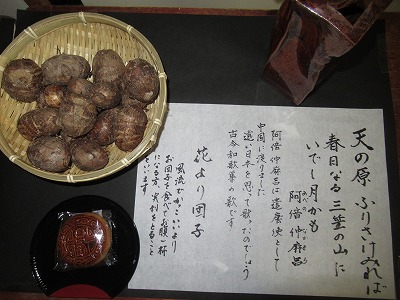 天の原 ふりさけみれば
春日なる 三笠の山に
いでし月かも
阿倍仲麻呂
あべの なかまろ
阿倍仲麻呂は遣唐使として
中国に渡りました
遠い日本を思って歌ったのでしょう
古今和歌集の歌です
花より団子
風流とかこいより
お団子を食べてお腹一杯
になる方、実利をとること
をいいます